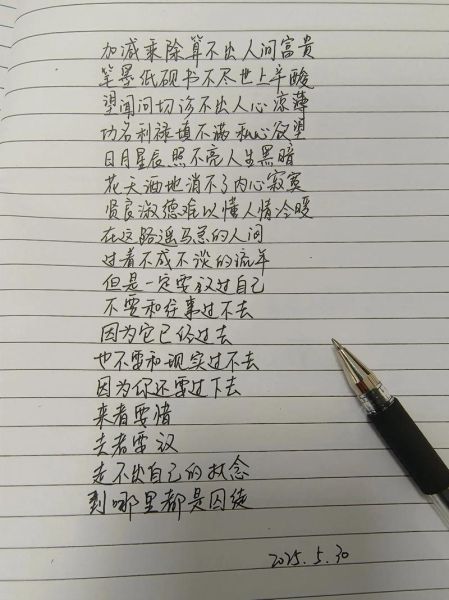 加减乘除算不出人间富贵
笔墨纸砚书不尽世上辛酸
望闻问切诊不出人心凉薄
功名利禄填不满私心欲望
日月星辰照不亮人生黑暗
花天酒地消不了内心寂寞
贤良淑德难以懂人情冷暖
在这路遥马急的人间
过着不咸不淡的流年
但是一定要放过自己
不要和往事过不去
因为它已经过去
也不要和现实过不去
因为你还要过下去
来者要惜
去者要放
走不出自己的执念
到哪里都是囚徒
2025.5.30